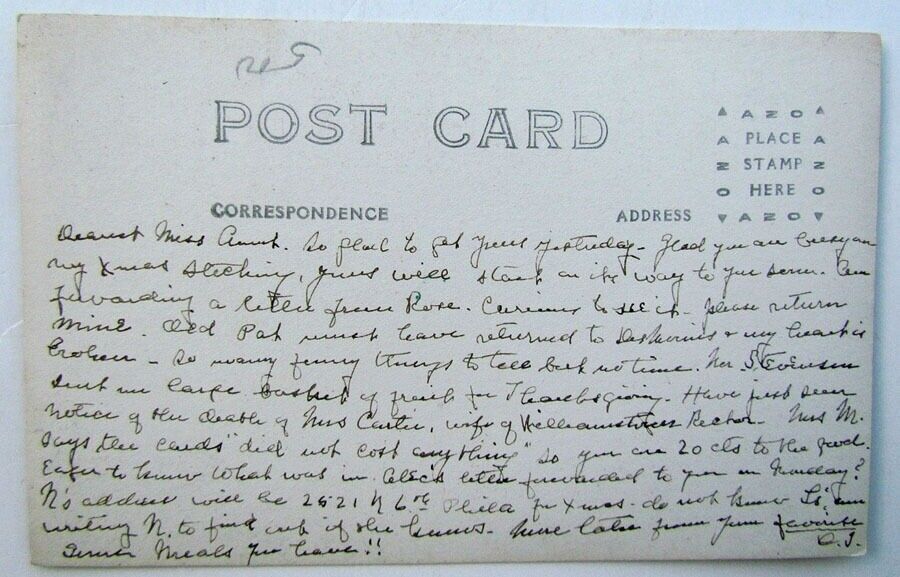 POST CARD
AZO
A PLACE A
Z STAMP Z
O HERE O
AZO
CORRESPONDENCE
ADDRESS
Dearest Miss so glad to get yours yesterday - Glad you are busy on
my Xmas stocking, yours will start on its way to you soon. Am
forwarding a letter from Rose. Curious to see it - please return
mine. Old Pat must have returned to & my heart is
broken - so many funny things to tell but no time. Mrs Stevenson
sent me large basket of fruit for Thanksgiving. Have just seen
notice of the death of Mrs Carter, wife of Williamstown Rector. Mrs M.
says the cards "did not cost anything" so you are 20 cts to the good.
Eager to know what was in letter forwarded to you on Monday?
N's address will be 2521 N 6th Phila for Xmas - do not know L's, am
writing N. to find out if she knows. More later from your favorite
D.J.
meals you have!!